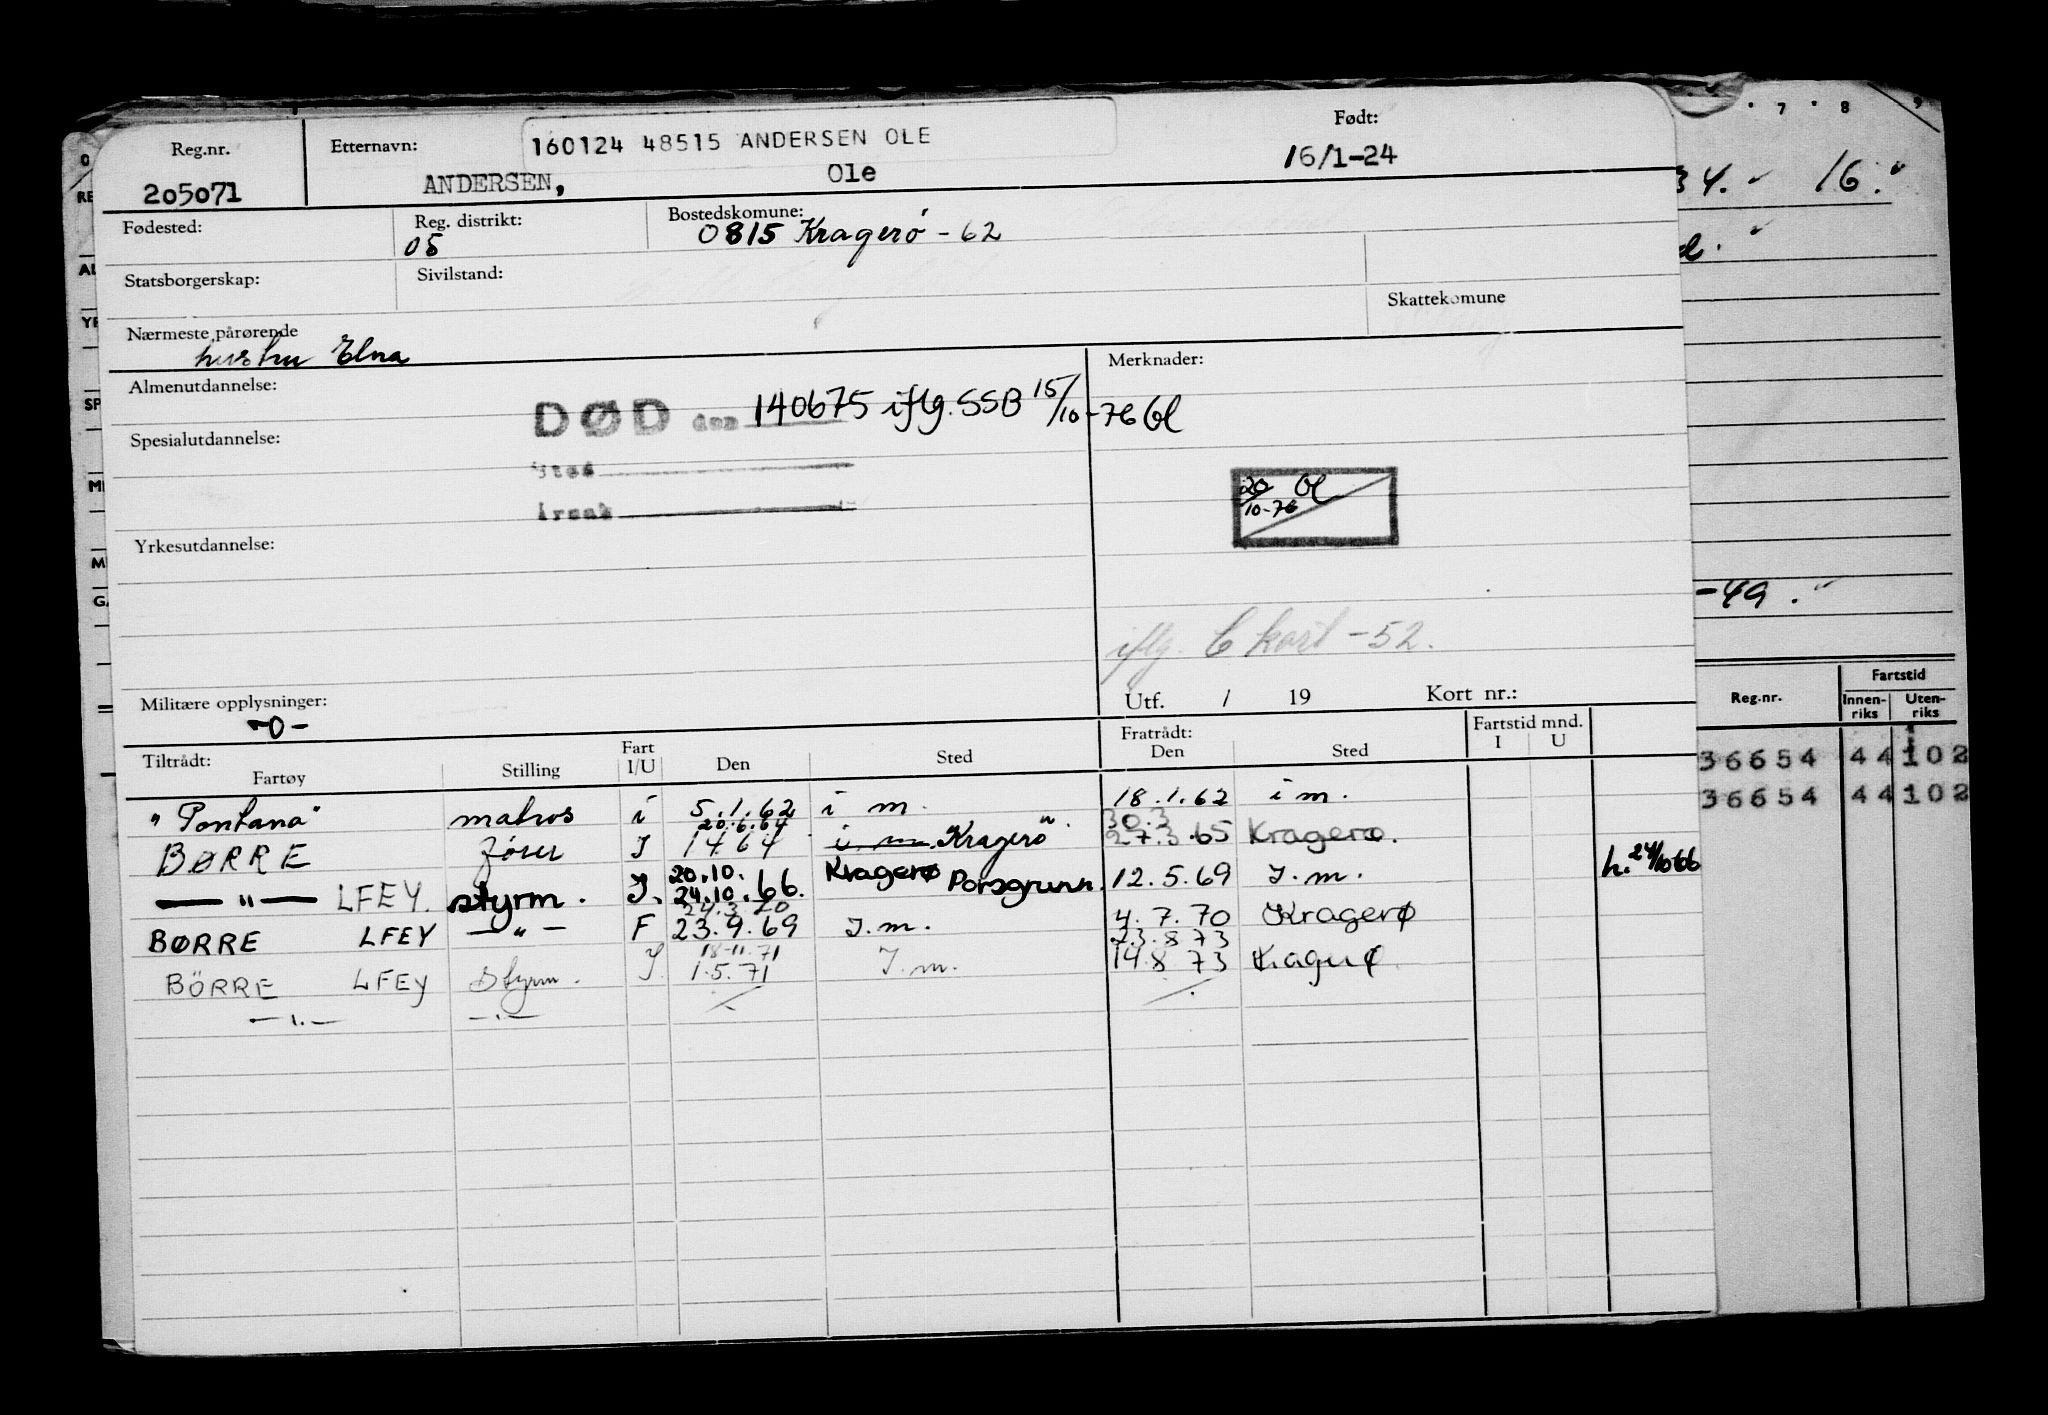 160124 48515 ANDERSEN OLE
Reg.nr. Etternavn: Født:
205071 ANDERSEN, Ole 16/1-24
Fødested: Reg. distrikt: Bostedskomune:
05 0815 Kragerø - 62
Statsborgerskap: Sivilstand:
Skattekomune
Nærmeste pårørende
hustru Elna
Almenutdannelse: Merknader:
DØD den 140675 iflg. SSB 15/10-76 Gl
Spesialutdannelse:
Sted
Årsak
20/10-76 Gl
Yrkesutdannelse:
iflg. C kort -52.
Militære opplysninger: Utf. / 19 Kort nr.:
-0-
Tiltrådt: Fart Fratrådt: Fartstid mnd.
Fartøy Stilling I/U Den Sted Den Sted I U
"Pontana" matros i 5.1.62 i m. 18.1.62 i m.
20.6.64 30.3
BØRRE fører I 1464 i m. Kragerø 27.3.65 Kragerø.
20.10. Kragerø
— " — LFEY. styrm. I. 24.10.66. Porsgrunn. 12.5.69 I.m. h. 24/10 66
24.3.70
BØRRE LFEY — " — F 23.9.69 I.m. 4.7.70 Kragerø
18-11.71 23.8 73
BÖRRE LFEY Styrm. I 1.5.71 I.m. 14.8 73 Kragerø
— " — — " —
7 8 9
34. 16.
-49.
Reg.nr. Fartstid
Innen-riks Uten-riks
36654 44 102
36654 44 102